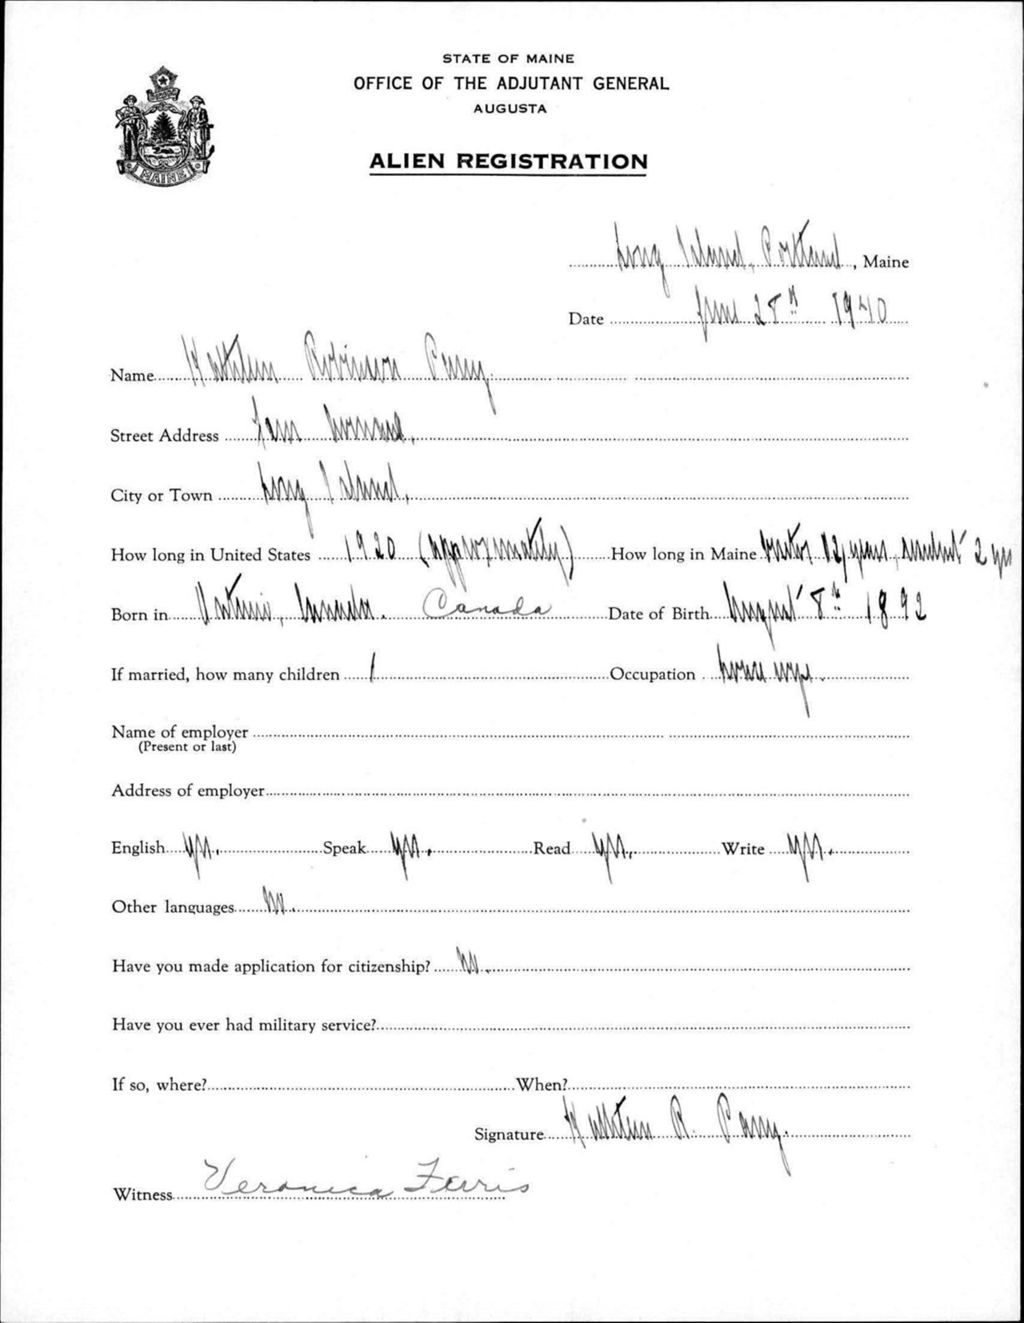 STATE OF MAINE
OFFICE OF THE ADJUTANT GENERAL
AUGUSTA
MAINE
ALIEN REGISTRATION
Long Island, Portland, Maine
Date June 28th 1940
Name Kathleen Robinson
Street Address Avenue,
City or Town Long Island,
How long in United States 1920 (approximately) How long in Maine visitor 12 years, resident 2 yrs
Born in Ontario, Canada. Canada Date of Birth August 8th 1892
If married, how many children 1 Occupation house wife.
Name of employer
(Present or last)
Address of employer
English yes. Speak yes. Read yes. Write yes.
Other languages no.
Have you made application for citizenship? no.
Have you ever had military service?
If so, where? When?
Signature Kathleen R.
Witness Veronica Ferris